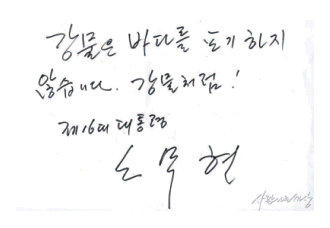 강물은 바다를 포기하지
않습니다. 강물처럼!
제16대 대통령
노무현